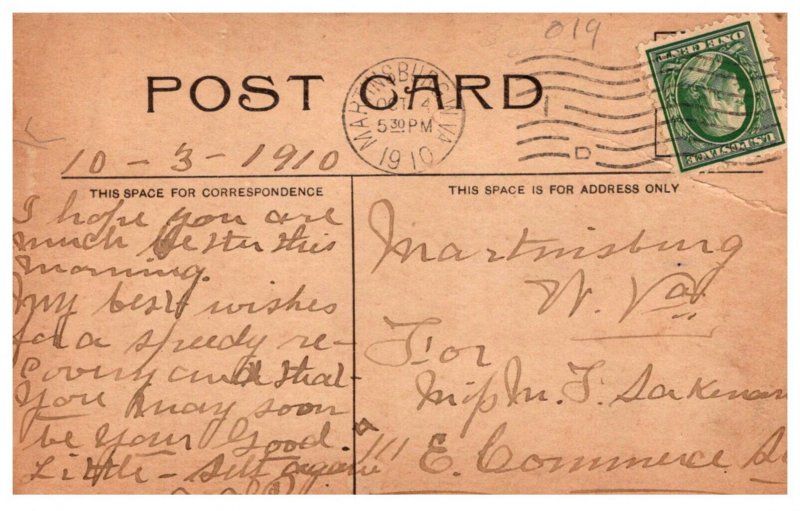 019
POST CARD
MARTINSBURG W.VA
OCT 4
5 30 PM
1910
1
D
ONE CENT
U.S. POSTAGE
10 - 3 - 1910
THIS SPACE FOR CORRESPONDENCE
I hope you are
much better this
morning.
My best wishes
for a speedy re-
covery and that
you may soon
be your Good
Little - self again
THIS SPACE IS FOR ADDRESS ONLY
Martinsburg
W. Va.
For
Miss M. F.
E. Commerce